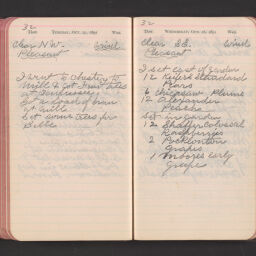 32
Ther. Tuesday, Oct. 25, 1892 Wea.
Clear N.W. Wind
Pleasant
I went to Chester to
Mill & got fruit trees
at
Got a load of bran
at Mills
Got some trees for
Bibbe
32
Ther. Wednesday, Oct. 26, 1892 Wea.
Clear S.E. Wind
Pleasant
I set east of garden
12 Keifer Standard
Pears
6 Chicsaw Plums
12 Alexander
Peaches
Set in garden
12 Shaffer Colossal
Raspberries
2 Pocklington
Grapes
1 Moores Early
Grape